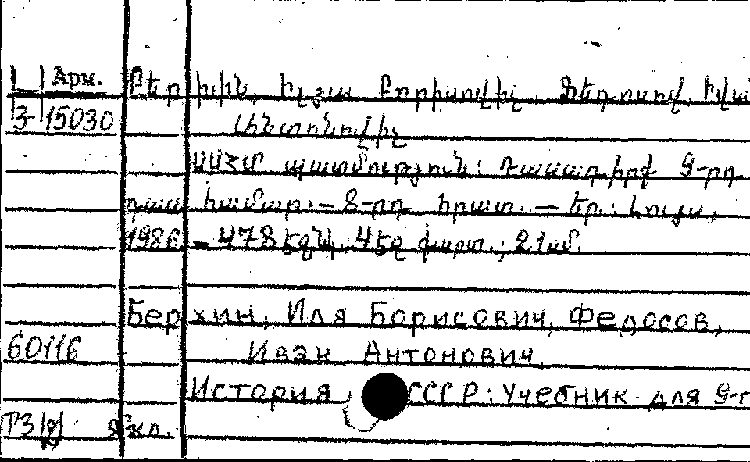 Арм. Բերխին, Իլյա Բորիսովիչ, Ֆեդոսով, Իվա
3-15030 Անտոնովիչ
ՍՍՀՄ պատմություն: Դասագիրք 9-րդ
դաս. համար.— 8-րդ հրատ. — Եր.: Լույս,
1986 — 478 էջ նկ. 4 էջ քարտ.; 21 սմ.
Берхин, Илья Борисович, Федосов,
60116 Иван Антонович.
История СССР: Учебник для 9-г
ТЗ кл.